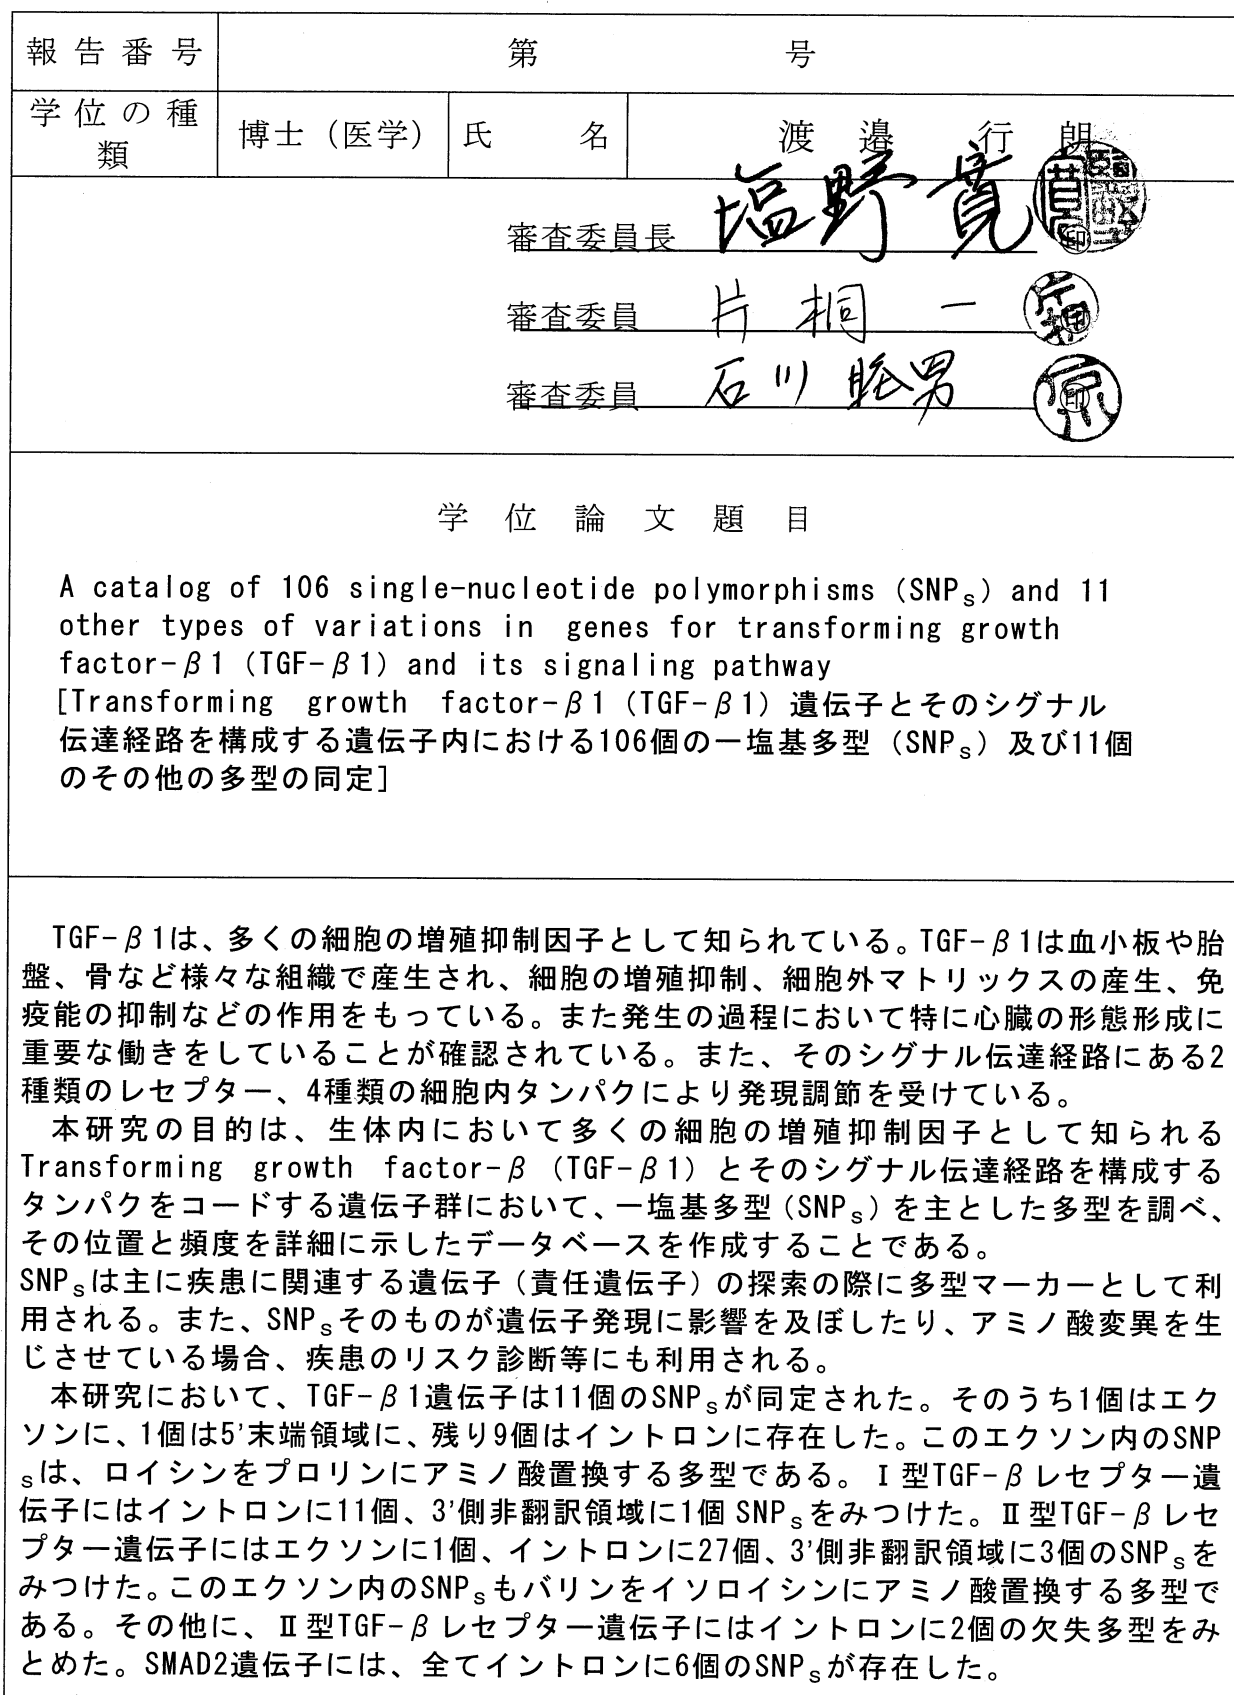 報告番号 第 号
学位の種類 博士（医学） 氏 名 渡邉 行朗
審査委員長 塩野寛
審査委員 片桐一
審査委員 石川睦男
学位論文題目
A catalog of 106 single-nucleotide polymorphisms (SNPs) and 11
other types of variations in genes for transforming growth
factor-β1 (TGF-β1) and its signaling pathway
[Transforming growth factor-β1（TGF-β1）遺伝子とそのシグナル
伝達経路を構成する遺伝子内における106個の一塩基多型（SNPs）及び11個
のその他の多型の同定]
TGF-β1は、多くの細胞の増殖抑制因子として知られている。TGF-β1は血小板や胎
盤、骨など様々な組織で産生され、細胞の増殖抑制、細胞外マトリックスの産生、免
疫能の抑制などの作用をもっている。また発生の過程において特に心臓の形態形成に
重要な働きをしていることが確認されている。また、そのシグナル伝達経路にある2
種類のレセプター、4種類の細胞内タンパクにより発現調節を受けている。
本研究の目的は、生体内において多くの細胞の増殖抑制因子として知られる
Transforming growth factor-β（TGF-β1）とそのシグナル伝達経路を構成する
タンパクをコードする遺伝子群において、一塩基多型（SNPs）を主とした多型を調べ、
その位置と頻度を詳細に示したデータベースを作成することである。
SNPsは主に疾患に関連する遺伝子（責任遺伝子）の探索の際に多型マーカーとして利
用される。また、SNPsそのものが遺伝子発現に影響を及ぼしたり、アミノ酸変異を生
じさせている場合、疾患のリスク診断等にも利用される。
本研究において、TGF-β1遺伝子は11個のSNPsが同定された。そのうち1個はエク
ソンに、1個は5'末端領域に、残り9個はイントロンに存在した。このエクソン内のSNP
sは、ロイシンをプロリンにアミノ酸置換する多型である。Ⅰ型TGF-βレセプター遺
伝子にはイントロンに11個、3'側非翻訳領域に1個 SNPsをみつけた。Ⅱ型TGF-βレセ
プター遺伝子にはエクソンに1個、イントロンに27個、3'側非翻訳領域に3個のSNPsを
みつけた。このエクソン内のSNPsもバリンをイソロイシンにアミノ酸置換する多型で
ある。その他に、Ⅱ型TGF-βレセプター遺伝子にはイントロンに2個の欠失多型をみ
とめた。SMAD2遺伝子には、全てイントロンに6個のSNPsが存在した。